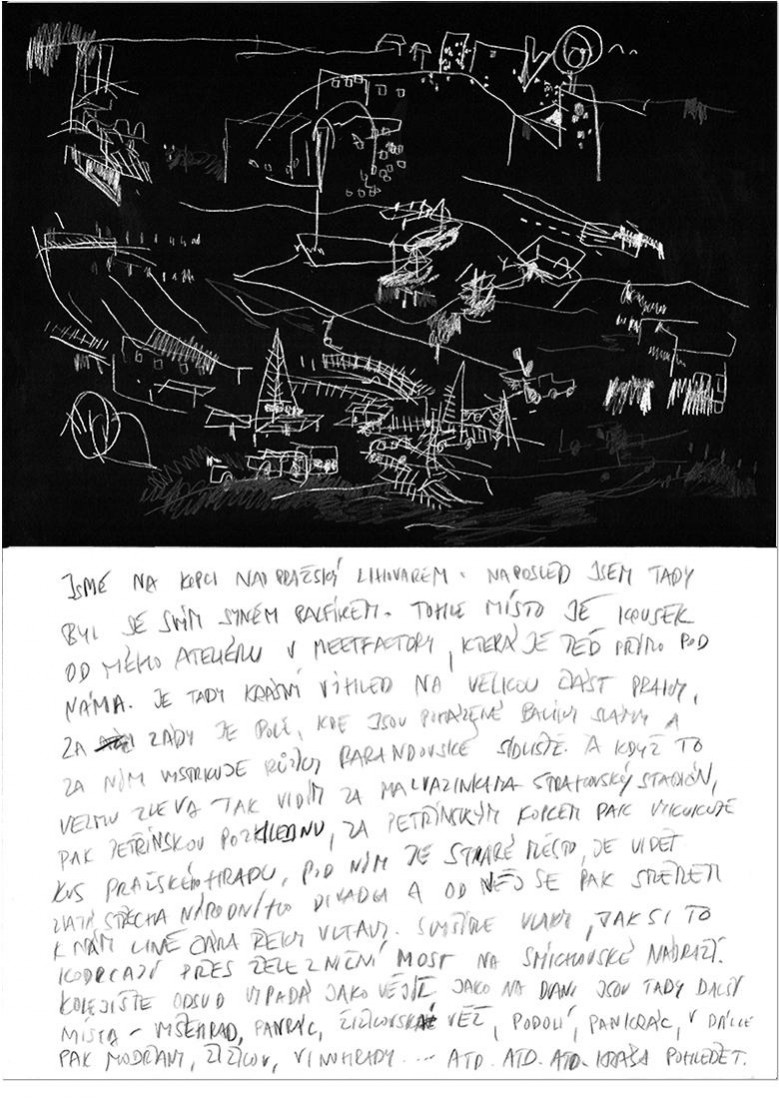 JSME NA KOPCI NAD PRAŽSKÝM LIHOVAREM. NAPOSLED JSEM TADY
BYL SE SVÝM SYNEM RALFÍKEM. TOHLE MÍSTO JE KOUSEK
OD MÉHO ATELIÉRU V MEETFACTORY, KTERÁ JE TEĎ PŘÍMO POD
NÁMA. JE TADY KRÁSNÝ VÝHLED NA VELKOU ČÁST PRAHY,
ZA ZÁDY JE POLE, KDE JSOU BALÍKY SLÁMY A
ZA NÍM VYSTRKUJE RŮŽKY BARANDOVSKÉ SÍDLIŠTĚ. A KDYŽ TO
VEZMU ZLEVA TAK VIDÍM ZA MALVAZINKAMA STRAHOVSKÝ STADION,
PAK PETŘÍNSKOU ROZHLEDNU, ZA PETŘÍNSKÝM KOPCEM PAK VYKUKUJE
KUS PRAŽSKÉHO HRADU, POD NÍM JE STARÉ MĚSTO, JE VIDĚT
ZLATÁ STŘECHA NÁRODNÍHO DIVADLA A OD NĚJ SE PAK
K NÁM LÍNĚ ČÁRA ŘEKY VLTAVY. SLYŠÍME VLAKY, JAK SI TO
KODRCAJÍ PŘES ŽELEZNIČNÍ MOST NA SMÍCHOVSKÉ NÁDRAŽÍ.
KOLEJIŠTĚ ODSUD VYPADÁ JAKO VĚJÍŘ. JAKO NA DLANI JSOU TADY DALŠÍ
MÍSTA - VYŠEHRAD, PANKRÁC, ŽIŽKOVSKÁ VĚŽ, PODOLÍ, PANKRÁC, V DÁLCE
PAK MODŘANY, ŽIŽKOV, VINOHRADY ... ATD. ATD. ATD. KRÁSA POHLEDĚT.